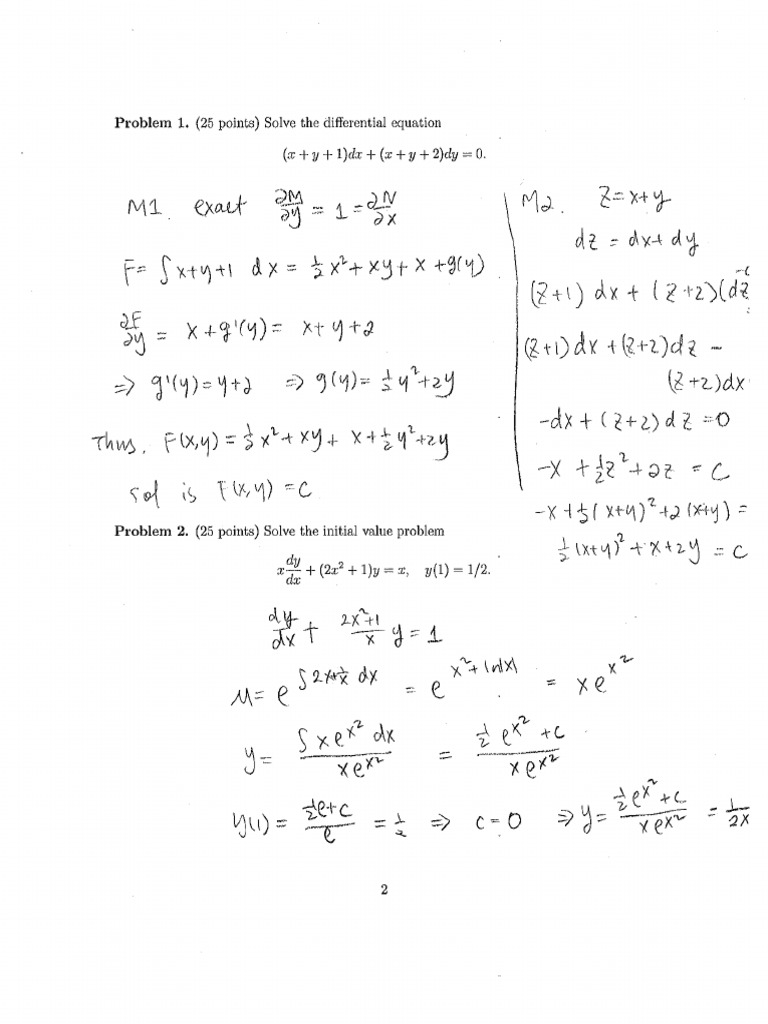 Problem 1. (25 points) Solve the differential equation
(x + y + 1)dx + (x + y + 2)dy = 0.
M1. exact ∂M/∂y = 1 = ∂N/∂x
F = ∫ x+y+1 dx = ½x² + xy + x + g(y)
∂F/∂y = x + g'(y) = x + y + 2
⇒ g'(y) = y+2 ⇒ g(y) = ½y² + 2y
Thus, F(x,y) = ½x² + xy + x + ½y² + 2y
Sol is F(x,y) = C
M2. Z = x+y
dz = dx + dy
(Z+1) dx + (Z+2)(dz
(Z+1) dx + (Z+2) dz −
(Z+2) dx
−dx + (Z+2) dZ = 0
−x + ½Z² + 2Z = C
−x + ½(x+y)² + 2(x+y) =
½(x+y)² + x + 2y = C
Problem 2. (25 points) Solve the initial value problem
x dy/dx + (2x² + 1)y = x, y(1) = 1/2.
dy/dx + (2x²+1)/x y = 1
μ = e^(∫ 2x+1/x dx) = e^(x² + ln|x|) = xe^(x²)
y = (∫ xe^(x²) dx)/(xe^(x²)) = (½e^(x²) + c)/(xe^(x²))
y(1) = (½e+c)/e = ½ ⇒ c = 0 ⇒ y = (½e^(x²) + c)/(xe^(x²)) = 1/2x
2